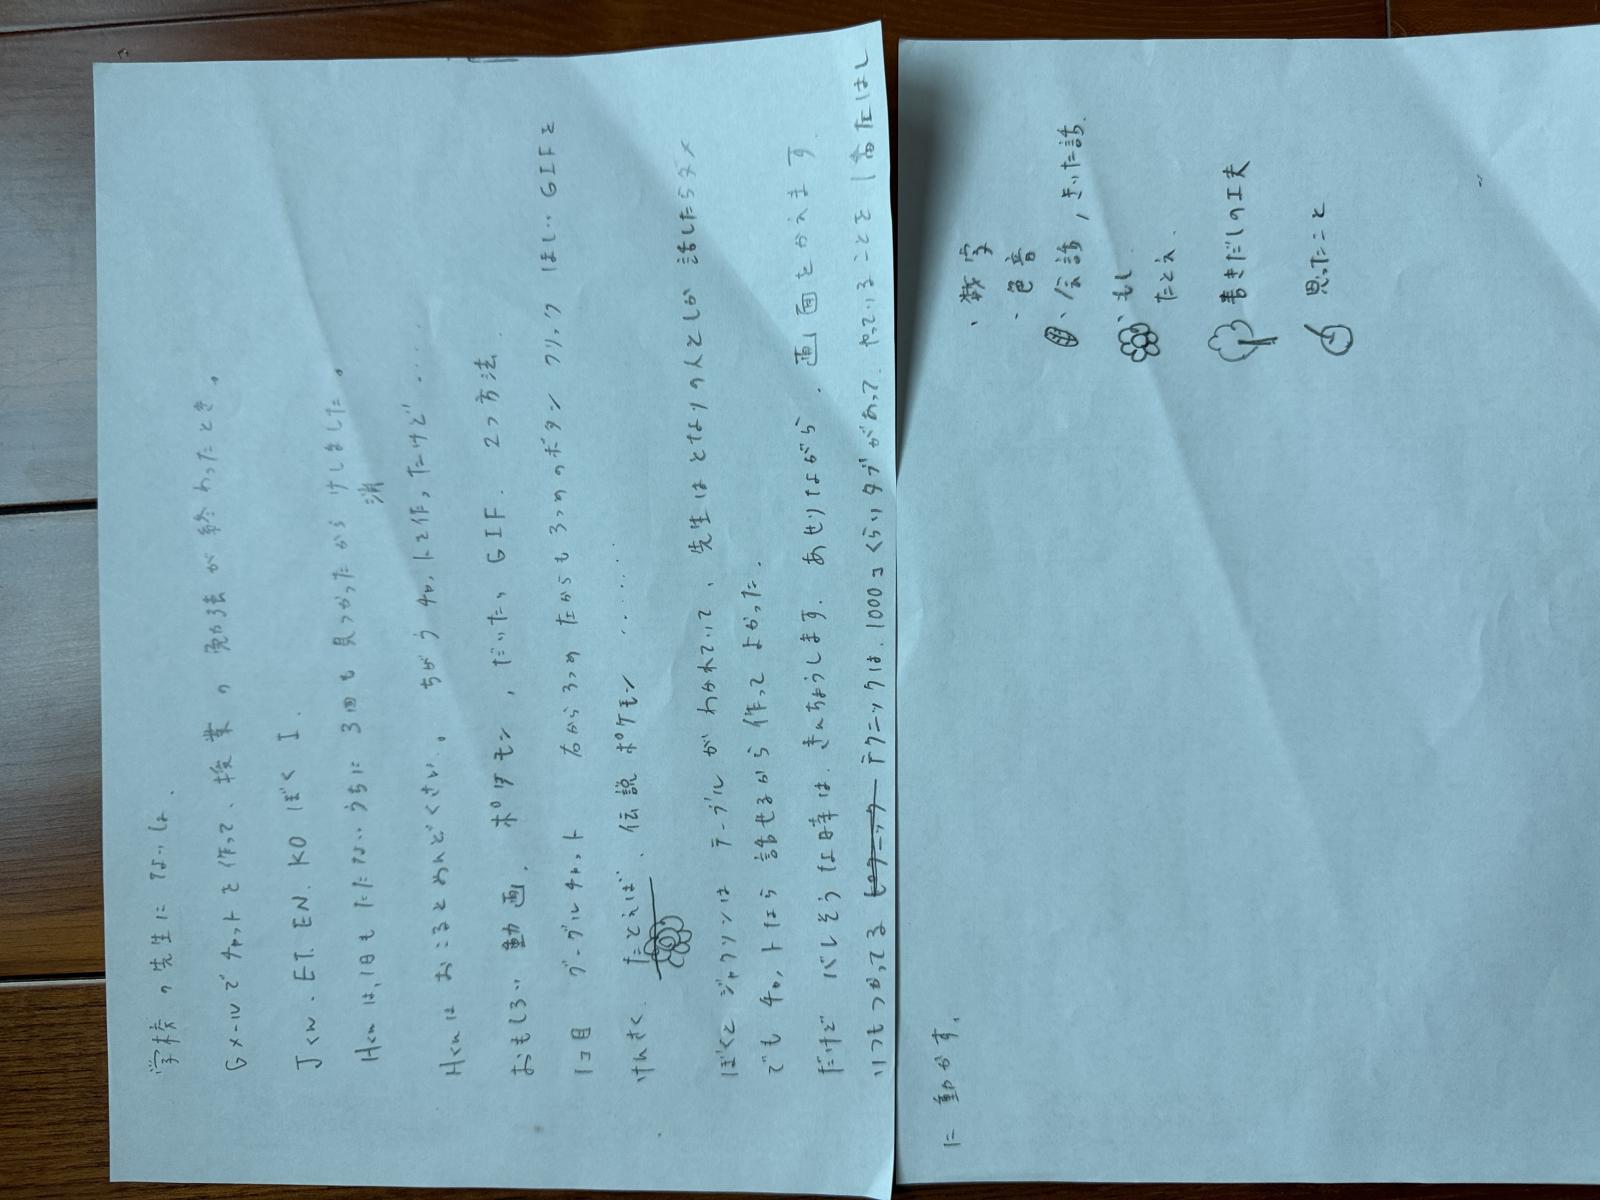 学校の先生にないしょ.
Gメールでチャットを作って、授業の勉強が終わったとき。
Jくん. ET. EN. KO ぼく I.
Hくんは、1日もたたないうちに 3回も見つかったから けしました。
消
Hくんは おこるとめんどくさい。 ちがうチャットを作ったけど….
おもしろい 動画. ポケモン, だいたい GIF. 2つ方法.
1コ目 グーグルチャット 右から3つめ 左からも3つめのボタン クリック ほしい GIFを
けんさく. たとえば、伝説ポケモン ......
ぼくとジャクソンは テーブルが わかれていて、先生はとなりの人としか 話したらダメ
でも チャットなら 話せるから 作って よかった.
だけど バレそうな時は. きんちょうします. あせりながら. 画面をかえます
いつもつかってる テクニックは. 1000コくらいタブがあって. やっていることを 1番左はし
に 動かす.
・数字
・色音
、会話, きいた話.
、もし
たとえ.
書きだしの工夫
思ったこと